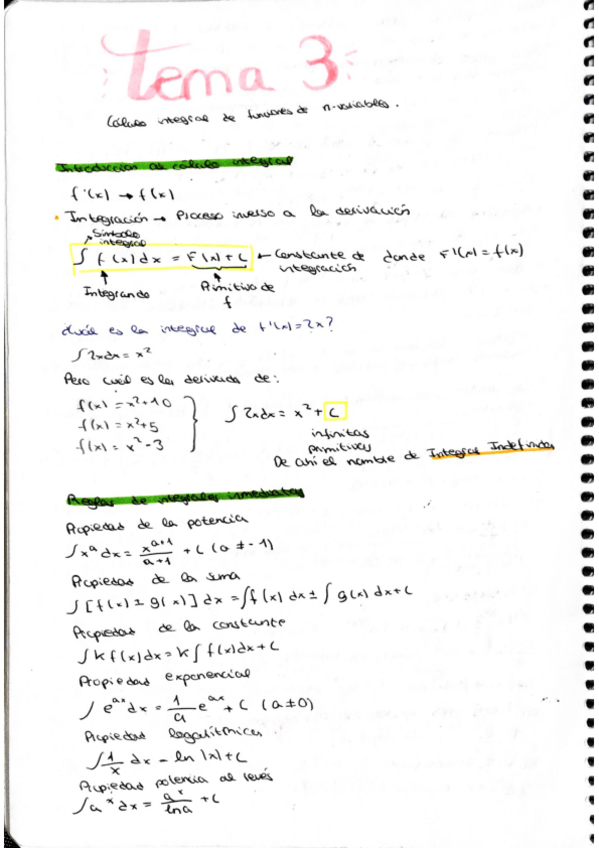 Tema 3
Cálculo integral de funciones de n-variables.
Introducción al cálculo integral
f'(x) → f(x)
• Integración → Proceso inverso a la derivación
Símbolo integral
∫ f(x)dx = F(x) + C ← Constante de integración donde F'(x) = f(x)
Integrando
Primitiva de f
¿Cuál es la integral de f'(x) = 2x?
∫2xdx = x²
Pero cuál es la derivada de:
f(x) = x²+10
f(x) = x²+5
f(x) = x²-3
∫2xdx = x² + C
infinitas primitivas
De ahí el nombre de Integral Indefinida
Reglas de integrales inmediatas
Propiedad de la potencia
∫x^a dx = x^(a+1)/(a+1) + C (a ≠ -1)
Propiedad de la suma
∫[f(x) ± g(x)] dx = ∫f(x) dx ± ∫g(x) dx + C
Propiedad de la constante
∫k f(x)dx = k∫f(x)dx + C
Propiedad exponencial
∫e^(ax) dx = 1/a e^(ax) + C (a ≠ 0)
Propiedad logarítmica
∫1/x dx = ln |x| + C
Propiedad potencia al revés
∫a^x dx = a^x/ln a + C